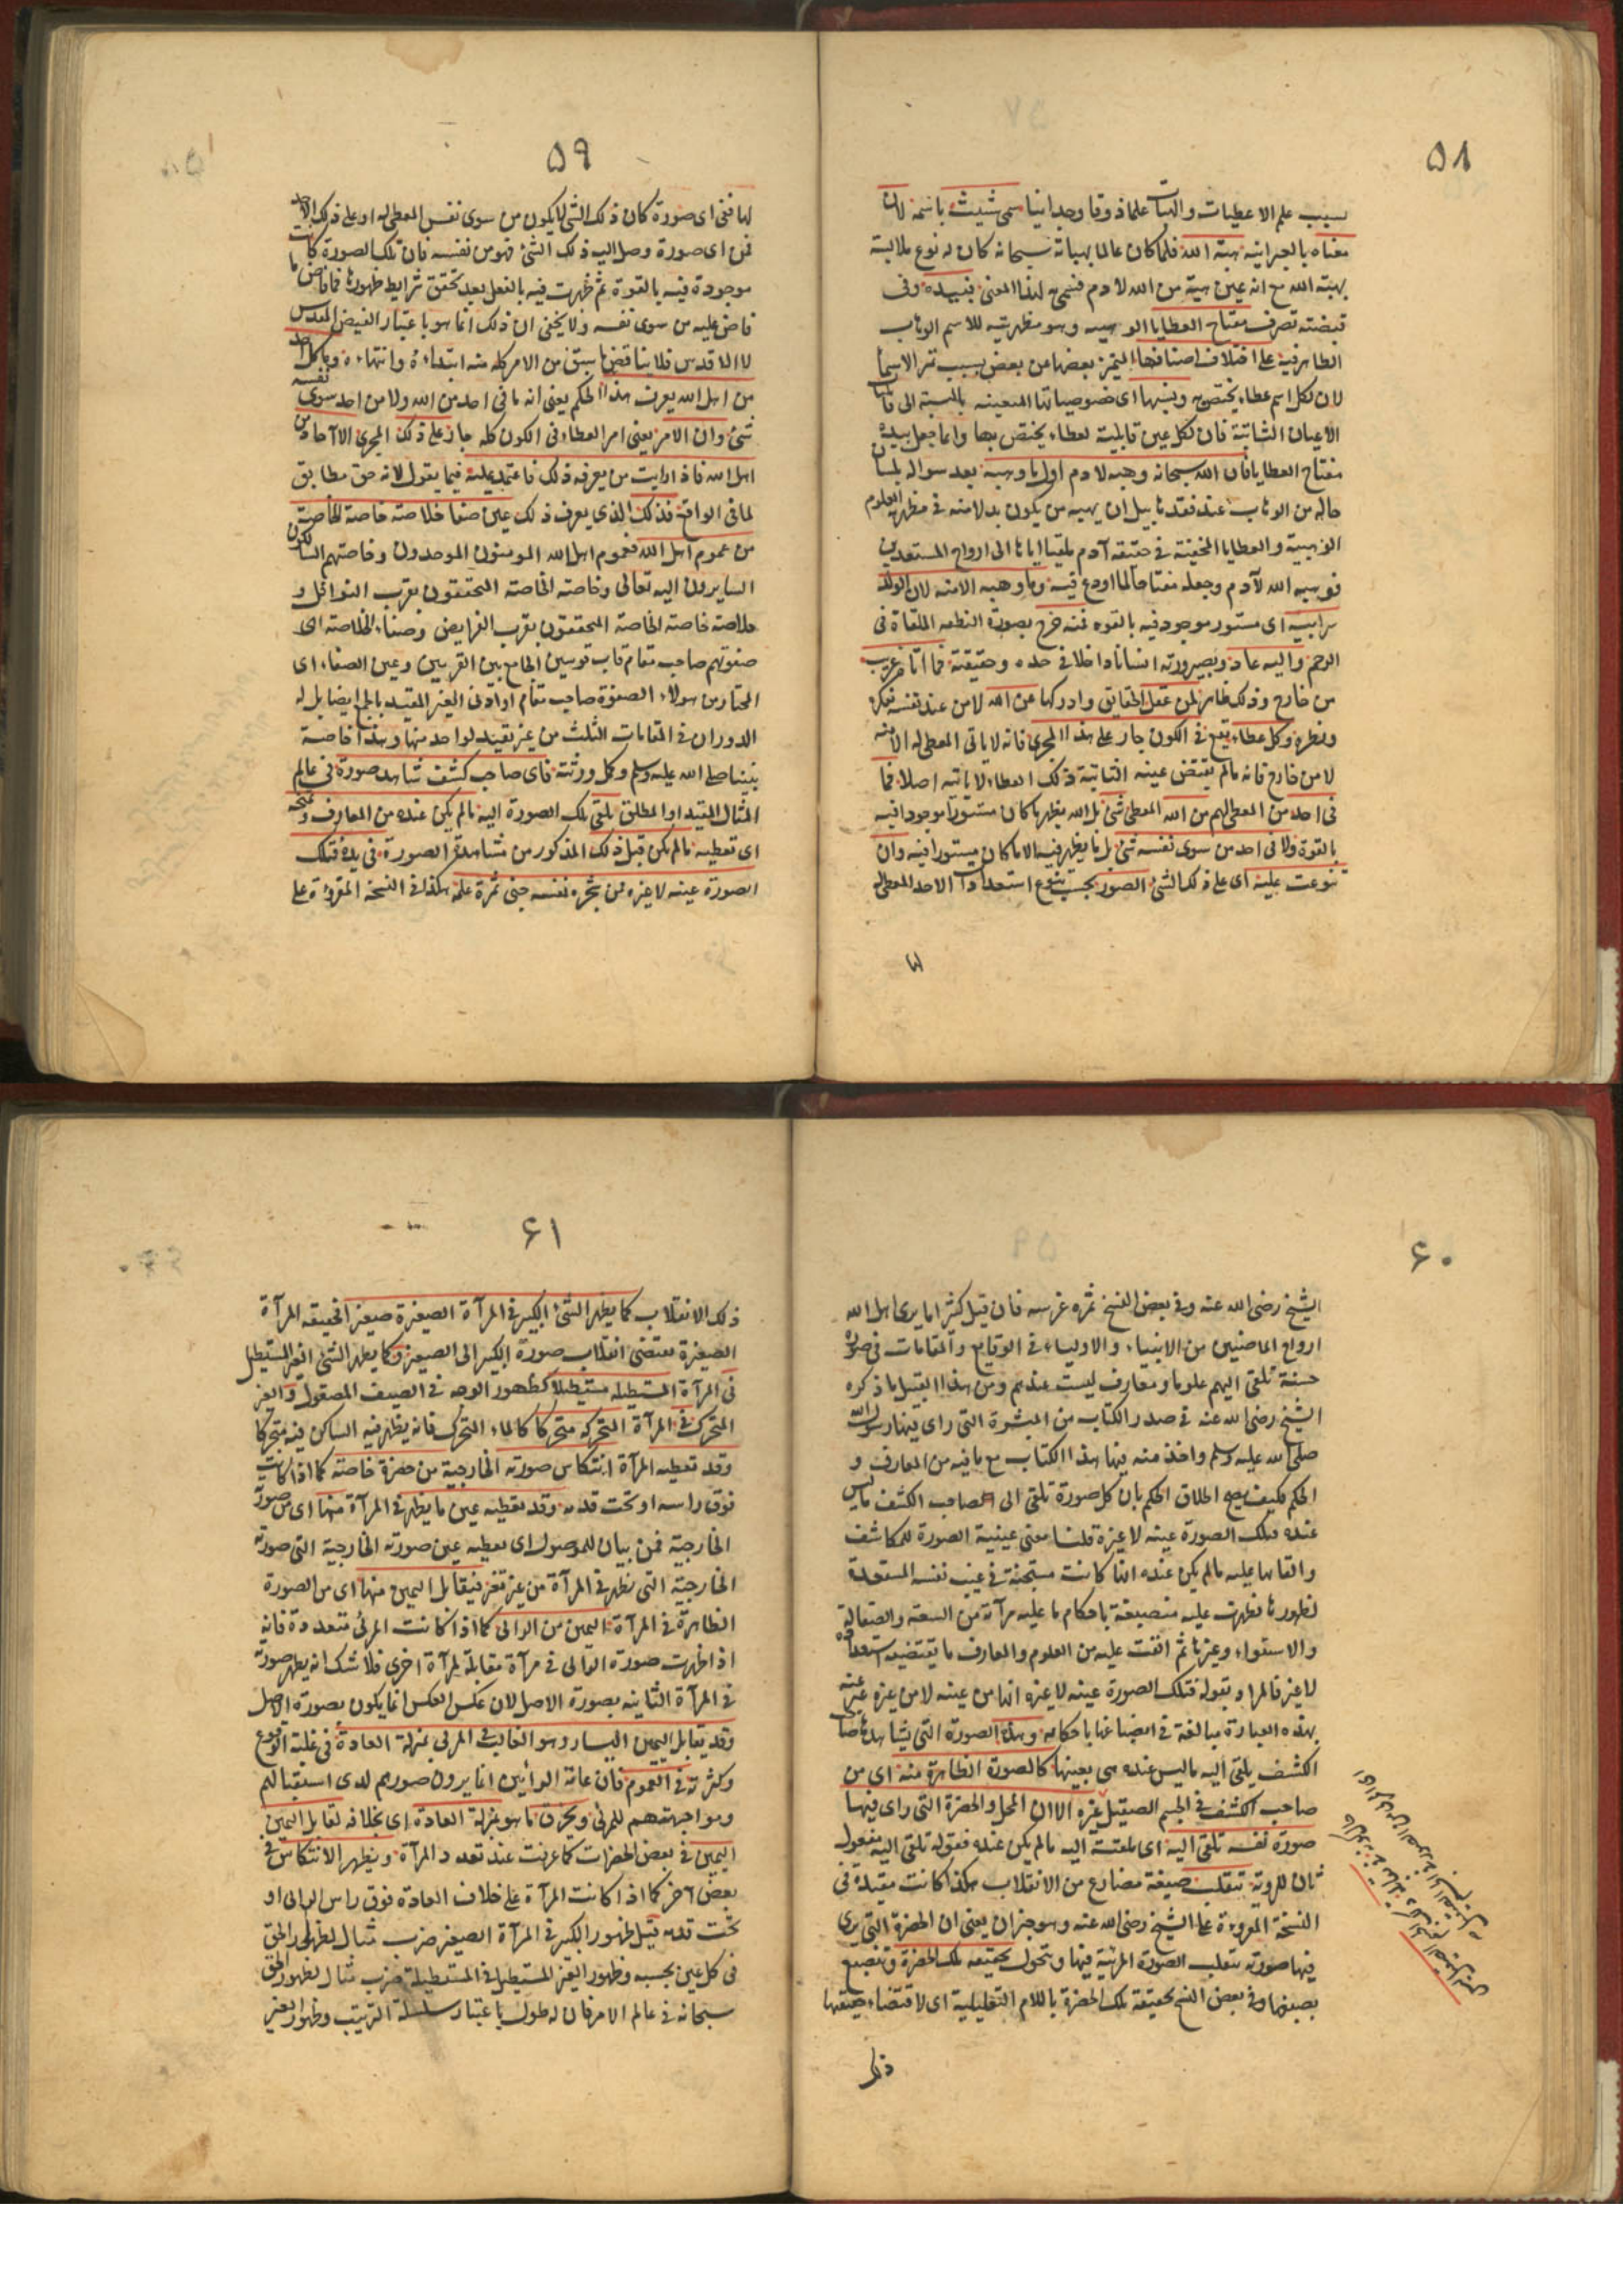 ٥٨
بسبب علم الاعطيات والهبات علما ذوقا وجدانيا سمى شيث باسمه لان
معناه بالعبرانية هبة الله فلما كان عالما بهباته سبحانه كان له نوع ملابسة
بهبة الله مع انه عين هبة من الله لادم فسمى لهذا المعنى فبيده وفى
قبضته تصرف مفتاح العطايا الوهبيه وهو مظهريته للاسم الوهاب
الظاهر فيه على اختلاف اصنافها المتميز بعضها من بعض بسبب تميز الاسما
لان لكل اسم عطاء يختص به ونسبها اى خصوصياتها المتعينه بالنسبة الى قابليات
الاعيان الثابتة فان لكل عين قابلية لعطاء يختص بها وانما جعل بيده
مفتاح العطايا فان الله سبحانه وهبه لادم اول ما وهبه بعد سواله بلسان
حاله من الوهاب عند فقد هابيل ان يهبه من يكون بدلا منه فى مظهرية العلوم
الوهبية والعطايا المخفية فى حقيقة آدم ملقيا اياها الى ارواح المستعدين
فوهبه الله لآدم وجعله مفتاحا لما اودع فيه وما وهبه الا منه لان الولد
سر ابيه اى مستور موجود فيه بالقوه فمنه خرج بصورة النطفه الملقاة فى
الرحم واليه عاد وبصيرورته انسانا داخلا فى حده وحقيقته فما اتاه غريب
من خارج وذلك ظاهر لمن عقل الحقايق وادركها عن الله لا من عند نفسه بفكره
ونظره وكل عطاء يقع فى الكون جار على هذا المجرى فانه لا ياتى المعطى له الا منه
لا من خارج فانه مالم يقتض عينه الثابتة ذلك العطاء لا ياتيه اصلا فما
فى احد من المعطى لهم من الله المعطى شئ بل الله يظهر ما كان مستورا موجودا فيه
بالقوة ولا فى احد من سوى نفسه شئ بل ما يظهر فيه الا ما كان مستورا فيه وان
تنوعت عليه اى على ذلك الشئ الصور بحسب تنوع استعدادات الاحد المعطى له
لها
٥٩
لها ففى اى صورة كان ذلك الشئ لا يكون من سوى نفس المعطى له او على ذلك الاحد
فمن اى صورة وصل اليه ذلك الشئ فهو من نفسه فان تلك الصورة كانت
موجودة فيه بالقوة ثم ظهرت فيه بالفعل بعد تحقق شرايط ظهورها فما فاض ما
فاض عليه من سوى نفسه ولا يخفى ان ذلك انما هو باعتبار الفيض المقدس
لا الاقدس فلا يناقض ما سبق من الامر كله منه ابتداءه وانتهاءه وما كل احد
من اهل الله يعرف هذا الحكم يعنى انه ما فى احد من الله ولا من احد سوى نفسه
شئ وان الامر يعنى امر العطاء فى الكون كله جار على ذلك المجرى الا آحاد من
اهل الله فاذا رايت من يعرف ذلك فاعتمد عليه فيما يقول لانه حق مطابق
لما فى الواقع فذلك الذى يعرف ذلك عين صفا خلاصة خاصة الخاصة
من عموم اهل الله فعموم اهل الله المومنون الموحدون وخاصتهم السالكون
السايرون اليه تعالى وخاصة الخاصة المتحققون بقرب النوافل و
خلاصة خاصة الخاصة المتحققون بقرب الفرايض وصفاء الخلاصة اى
صفوتهم صاحب مقام قاب قوسين الجامع بين القربين وعين الصفاء اى
المختار من هولاء الصفوة صاحب مقام او ادنى الغير المقيد بالجمع ايضا بل له
الدوران فى المقامات الثلث من غير تقيد لواحد منها وهذا خاصة
نبينا صلى الله عليه وسلم وكمل ورثته فاى صاحب كشف شاهد صورة فى عالم
المثال المقيد او المطلق تلقى تلك الصورة اليه مالم يكن عنده من المعارف وتمنحه
اى تعطيه مالم يكن قبل ذلك المذكور من مشاهدة الصورة فى يده فتلك
الصورة عينه لا غيره فمن شجره نفسه جنى ثمرة علمه هكذا فى النسخة المقروءة على
٦٠
الشيخ رضى الله عنه وفى بعض النسخ ثمره غرسه فان قيل كثيرا ما يرى اهل الله
ارواح الماضين من الانبياء والاولياء فى الوقايع والمقامات فى صورة
حسنة تلقى اليهم علوما ومعارف ليست عندهم ومن هذا القبيل ما ذكره
الشيخ رضى الله عنه فى صدر الكتاب من المبشرة التى راى فيها رسول الله
صلى الله عليه وسلم واخذ منه فيها هذا الكتاب مع ما فيه من المعارف و
الحكم فكيف يصح اطلاق الحكم بان كل صورة تلقى الى صاحب الكشف ما ليس
عنده فتلك الصورة عينه لا غيره قلنا معنى عينية الصورة للمكاشف
والقاها عليه مالم يكن عنده انها كانت مستجنة فى غيب نفسه المستعدة
لظهورها فظهرت عليه منصبغة باحكام ما عليه مرآته من السعة والصقالة
والاستواء وغيرها ثم القت عليه من العلوم والمعارف ما يقتضيه استعداده
لا غير فالمراد بقوله فتلك الصورة عينه لا غيره انها من عينه لا من غيره عبر عنه
بهذه العبارة مبالغة فى انصباغها باحكامه وهذه الصورة التى يشاهدها صاحب
الكشف يلقى اليه ما ليس عنده هى بعينها كالصورة الظاهرة منه اى من
صاحب الكشف فى الجسم الصقيل غيره الا ان المحل والحضرة التى راى فيها
صورة نفسه تلقى اليه اى ملقيه اليه مالم يكن عنده فقوله تلقى اليه مفعول
ثان للروية تتقلب صيغة مضارع من الانقلاب هكذا كانت مقيدة فى
النسخة المقروءة على الشيخ رضى الله عنه وهو خبر ان يعنى ان الحضرة التى يرى
فيها صورته تتقلب الصورة المرئية فيها وتتحول بحقيقة تلك الحضرة وتنصبغ
بصبغها وفى بعض النسخ لحقيقة تلك الحضرة باللام التعليلية اى لاقتضاء حقيقتها
ذلك
٦١
ذلك الانقلاب كما يظهر الشئ الكبير فى المرآة الصغيرة صغيرا لحقيقة المرآة
الصغيرة تقتضى انقلاب صورة الكبير الى الصغير وكما يظهر الشئ الغير المستطيل
فى المرآة المستطيله مستطيلا كظهور الوجه فى السيف المصقول والغير
المتحرك فى المرآة المتحركه متحركا كالماء المتحرك فانه يظهر فيه الساكن فيه متحركا
وقد تعطيه المرآة انتكاس صورته الخارجية من حضرة خاصة كما اذا كانت
فوق راسه او تحت قدمه وقد تعطيه عين ما يظهر فى المرآة منها اى من صورته
الخارجية فمن بيان للموصول اى تعطيه عين صورته الخارجية التى صورته
الخارجية التى تظهر فى المرآة من غير تغير فيقابل اليمين منها اى من الصورة
الظاهرة فى المرآة اليمين من الرائى كما اذا كانت المرئى متعددة فانه
اذا ظهرت صورة الرائى فى مرآة مقابلة لمرآة اخرى فلا شك انه يظهر صورته
فى المرآة الثانيه بصورة الاصل لان عكس العكس انما يكون بصورة الاصل
وقد يقابل اليمين اليسار وهو الغالب فى المرئى بمنزلة العادة فى غلبة الوقوع
وكثرته فى العموم فان عامة الرائين انما يرون صورهم لدى استقبالهم
ومواجهتهم للمرئى وبخرق ما هو بمنزلة العادة اى بخلافه تقابل اليمين
اليمين فى بعض الحضرات كما عرفت عند تعدد المرآة ويظهر الانتكاس فى
بعض اخر كما اذا كانت المرآة على خلاف العادة فوق راس الرائى او
تحت قدمه قيل ظهور الكبير فى المرآة الصغير ضرب مثال لظهور الحق
فى كل عين بحسبه وظهور الغير المستطيل فى المستطيلة ضرب مثال لظهور الحق
سبحانه فى عالم الامر فان له طولا باعتبار سلسلة الترتيب وظهور الغير